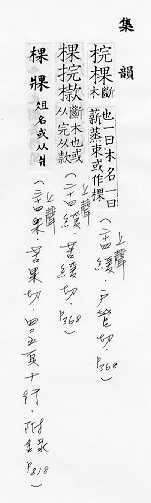 集韻
梡棵 斷木也一曰木名一曰薪蒸束或作棵 (上聲 二十四緩·戶管切·P368)
棵梡 斷木也或从完从款 (上聲 二十四緩·苦緩切·P368)
棵 俎名或从爿 (上聲 三十四果·苦果切·四五頁十行·附錄P818)